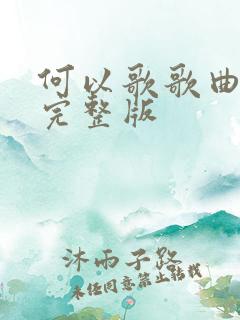 何以歌歌曲
完整版
沐雨子路
未经同意禁止转载